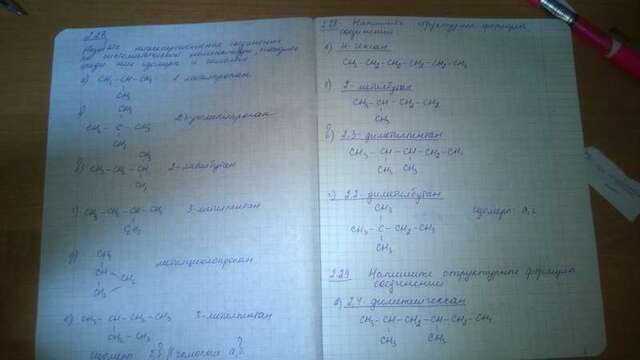 2.23
Назовите соединения
по систематической номенклатуре, найдите
среди них изомеры и гомологи
а) CH₃-CH-CH₃ 2-метилпропан
CH₃
CH₃
CH₃-C-CH₃ 2,2-диметилпропан
CH₃
CH₃
в) CH₃-CH₂-CH 2-метилбутан
CH₃
г) CH₃-CH₂-CH-CH₃ 3-метилпентан
C₂H₅
д) CH₂
CH-CH₃ метилциклопропан
CH₂
е) CH₃-CH-CH₂-CH₃ 3-метилпентан
CH₂-CH₃
Изомеры гомологи
2.28 Напишите структурные формулы
соединений
а) Н-гексан
CH₃-CH₂-CH₂-CH₂-CH₂-CH₃
б) 2-метилбутан
CH₃-CH-CH₂-CH₃
CH₃
в) 2,3-диметилпентан
CH₃-CH-CH-CH₂-CH₃
CH₃ CH₃
г) 2,2-диметилбутан
CH₃ Изомеры: а, г
CH₃-C-CH₂-CH₃
CH₃
2.29 Напишите структурные формулы
соединений
а) 2,4-диметилгексан
CH₃-CH-CH₂-CH-CH₂-CH₃
CH₃ CH₃